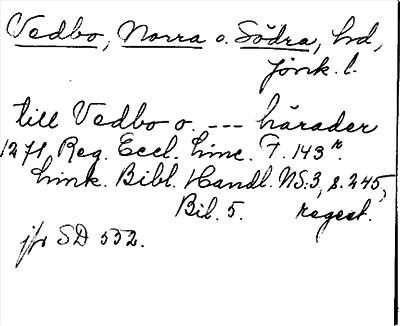 Vedbo, Norra o. Södra, hd,
jönk. l.
till Vedbo o. --- härader
1271 Reg. Eccl. Linc. F. 143r.
Link. Bibl. Handl. NS:3, s. 245,
Bil. 5. regest.
jfr SD 552.